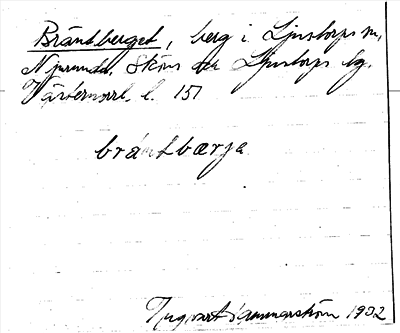 Bräntberget, berg i Ljustorps sn,
Njurunda, Sköns och Ljustorps tg.
Västernorrl. l. 151
brántbærja
Ingvart Hammarström 1932